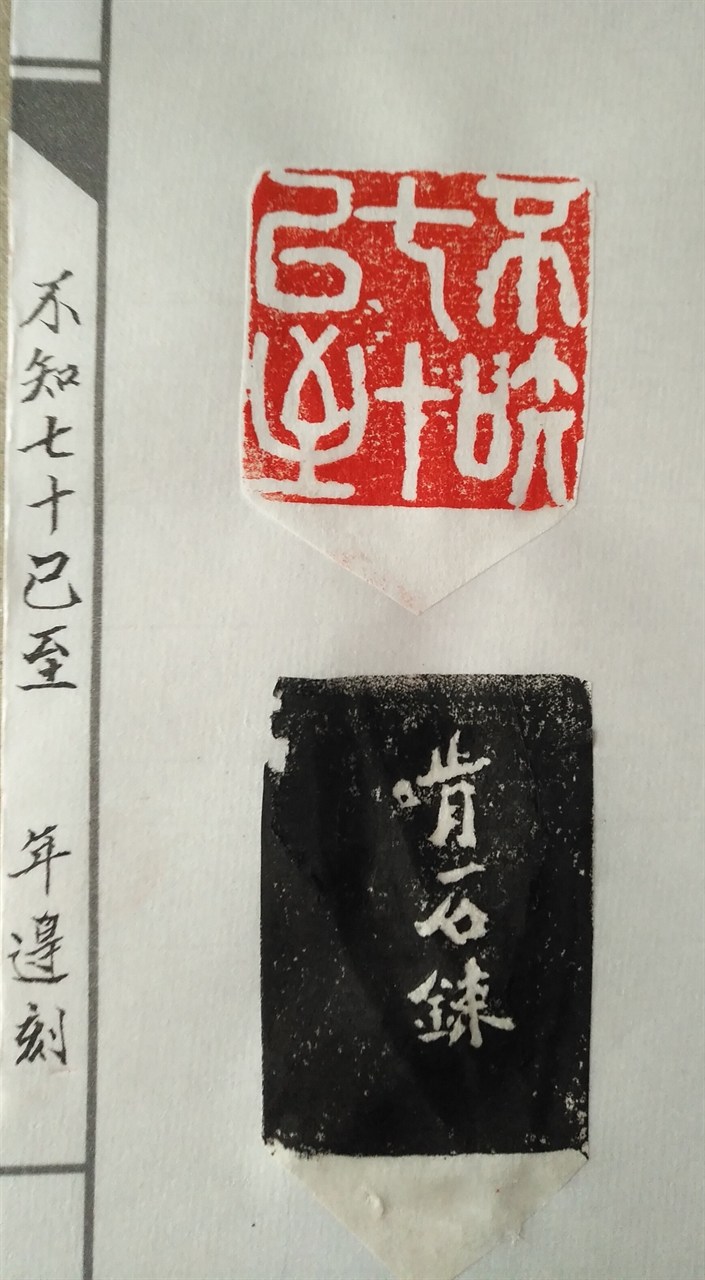 不知
七十
已至
啃石鍊
不知七十已至 年 刻